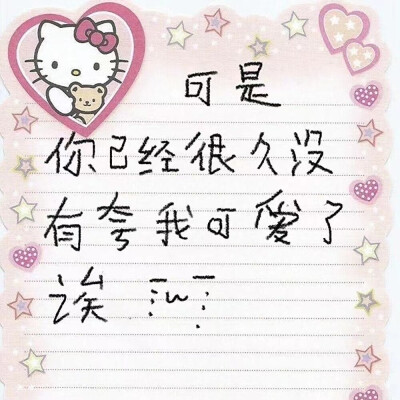 可是
你已经很久没
有夸我可愛了
诶 ಥ_ಥ